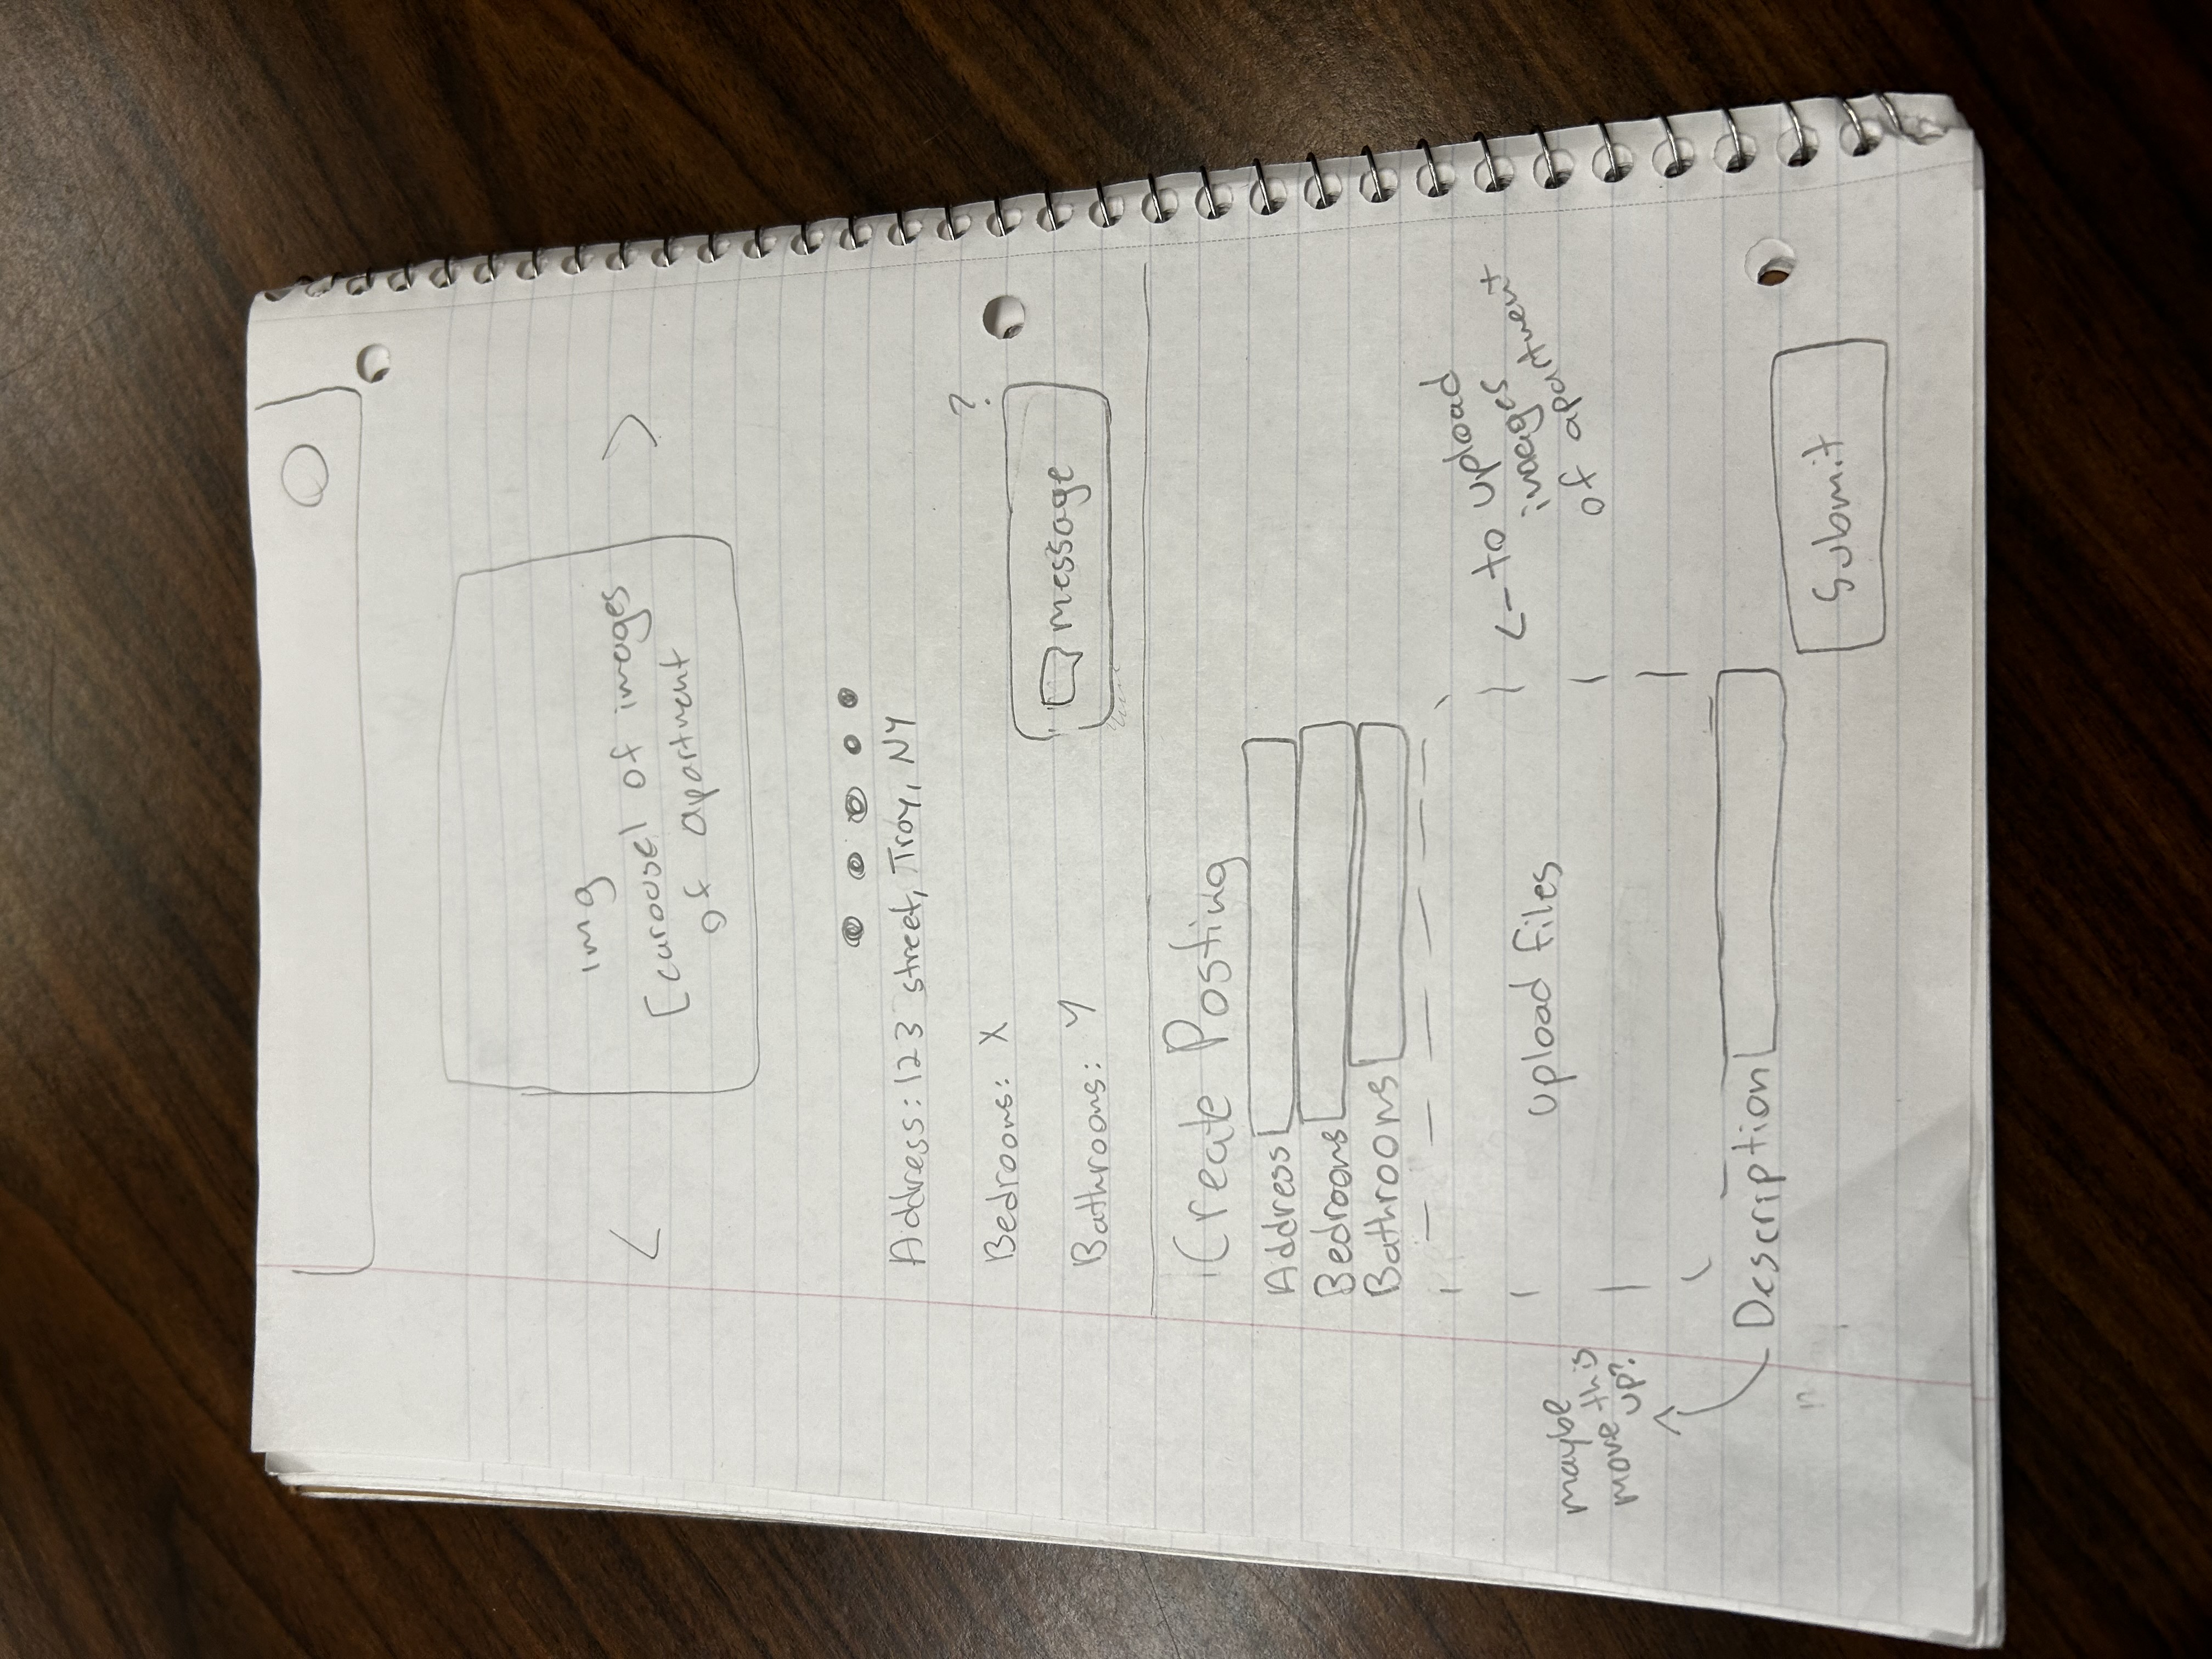 img
[carousel of images
of apartment
<
>
Address: 123 street, Troy, NY
Bedrooms: X
?
message
Bathrooms: Y
Create Posting
Address
Bedrooms
Bathrooms
upload files
<- to upload
images
of apartment
maybe
move this
up?
Description
Submit